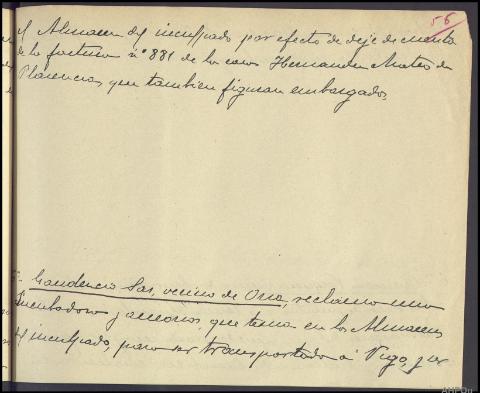 56
el Almacen del inculpado por efecto de deje de cuenta
de la factura nº 881 de la casa Hernandez Mateo de
Plasencia, que tambien figuran embargados,
Gaudencio Sas, vecino de Oria, reclama una
Incubadora y accesorios, que tenia en los Almacenes
del inculpado, para ser transportada a Vigo, y se
AHPOu